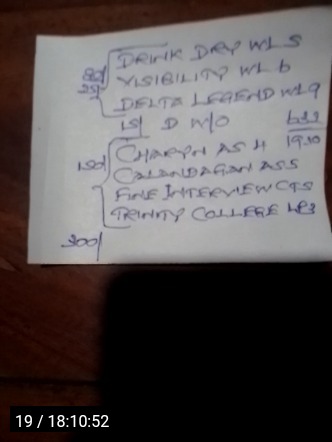 80/ DRINK DRY WL 5
25/ VISIBILITY WL 6
DELTA LEGEND WL 9
15/ D W/O 633
1930
150/ CHARYN AS 4
CALANDAGAN AS 5
FINE INTERVIEW CTS
TRINITY COLLEGE LP3
300/
19 / 18:10:52